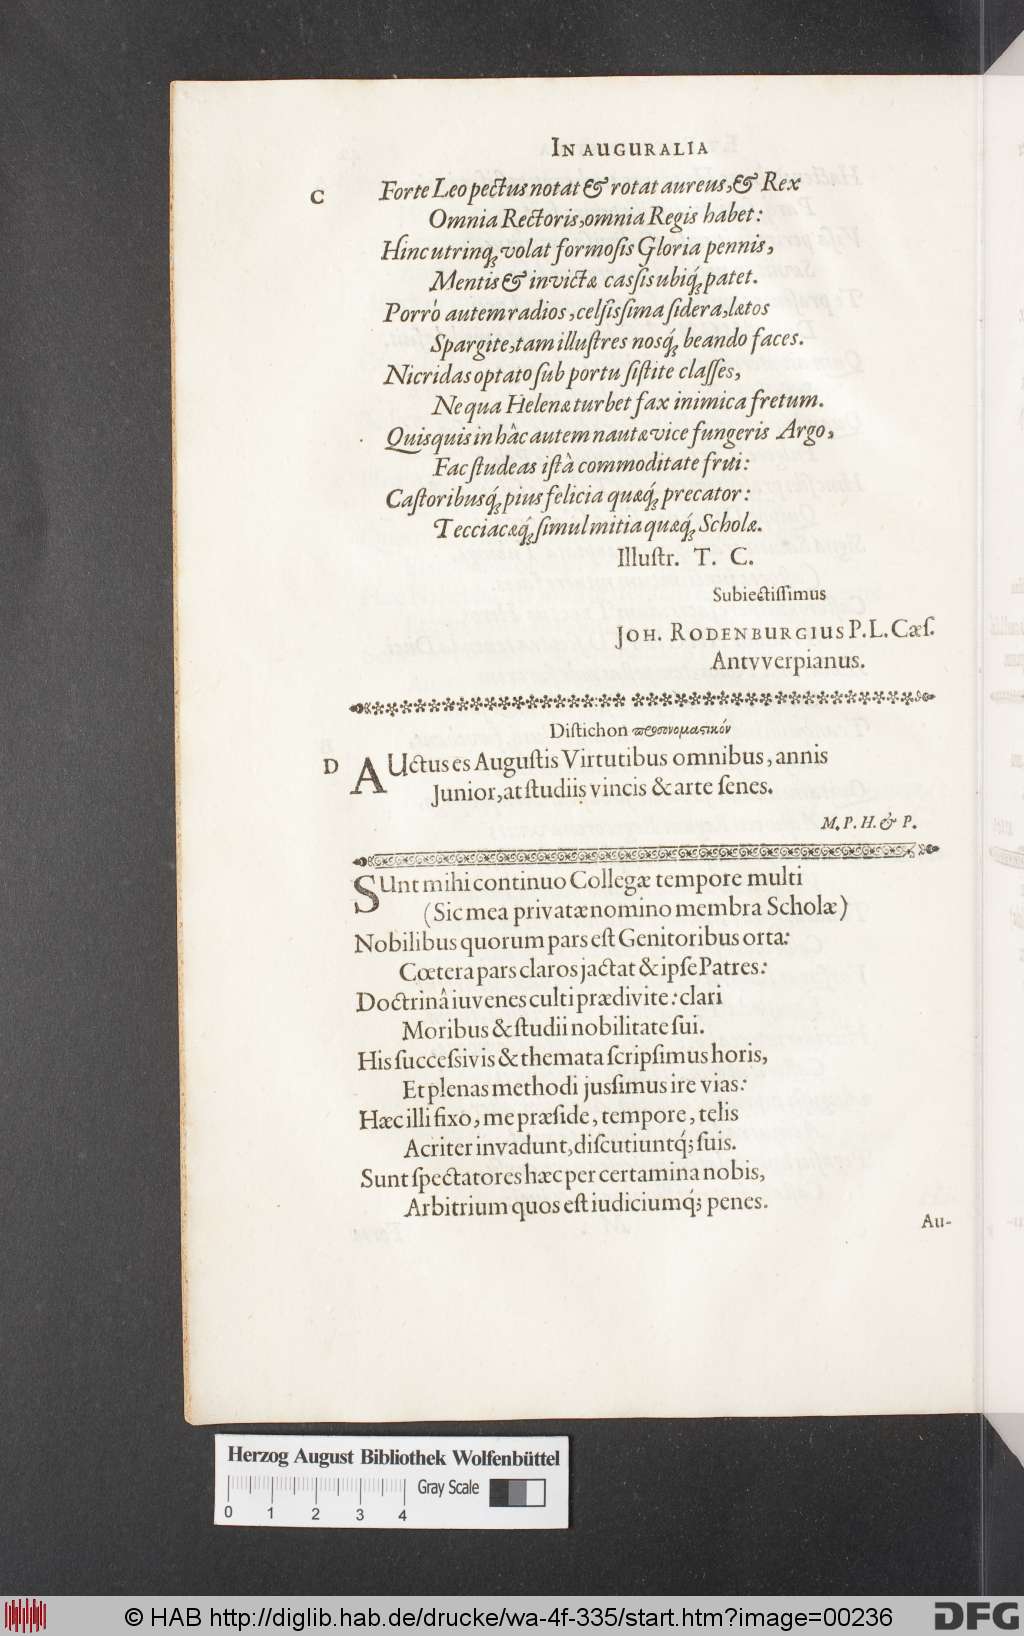 INAUGURALIA
C
Forte Leo pectus notat & rotat aureus, & Rex
Omnia Rectoris, omnia Regis habet:
Hinc utrinq́; volat formosis Gloria pennis,
Mentis & invictæ cassis ubiq́; patet.
Porrò autem radios, celsissima sidera, lætos
Spargite, tam illustres nosq́; beando faces.
Nicridas optato sub portu sistite classes,
Ne qua Helenæ turbet fax inimica fretum.
Quisquis in hâc autem nautæ vice fungeris Argo,
Fac studeas istà commoditate frui:
Castoribusq́; pius felicia quæq́; precator:
Tecciacæq́; simul mitia quæq́; Scholæ.
Illustr. T. C.
Subiectissimus
JOH. RODENBURGIUS P. L. Cæs.
Antvverpianus.
Distichon
D
AUctus es Augustis Virtutibus omnibus, annis
Junior, at studiis vincis & arte senes.
M. P. H. & P.
SUnt mihi continuo Collegæ tempore multi
(Sic mea privatæ nomino membra Scholæ)
Nobilibus quorum pars est Genitoribus orta:
Cœtera pars claros jactat & ipse Patres:
Doctrinâ iuvenes culti prædivite: clari
Moribus & studii nobilitate sui.
His successivis & themata scripsimus horis,
Et plenas methodi jussimus ire vias:
Hæc illi fixo, me præside, tempore, telis
Acriter invadunt, discutiuntq́; suis.
Sunt spectatores hæc per certamina nobis,
Arbitrium quos est iudiciumq́; penes.
Au-
Herzog August Bibliothek Wolfenbüttel
Gray Scale
0 1 2 3 4
© HAB http://diglib.hab.de/drucke/wa-4f-335/start.htm?image=00236
DFG